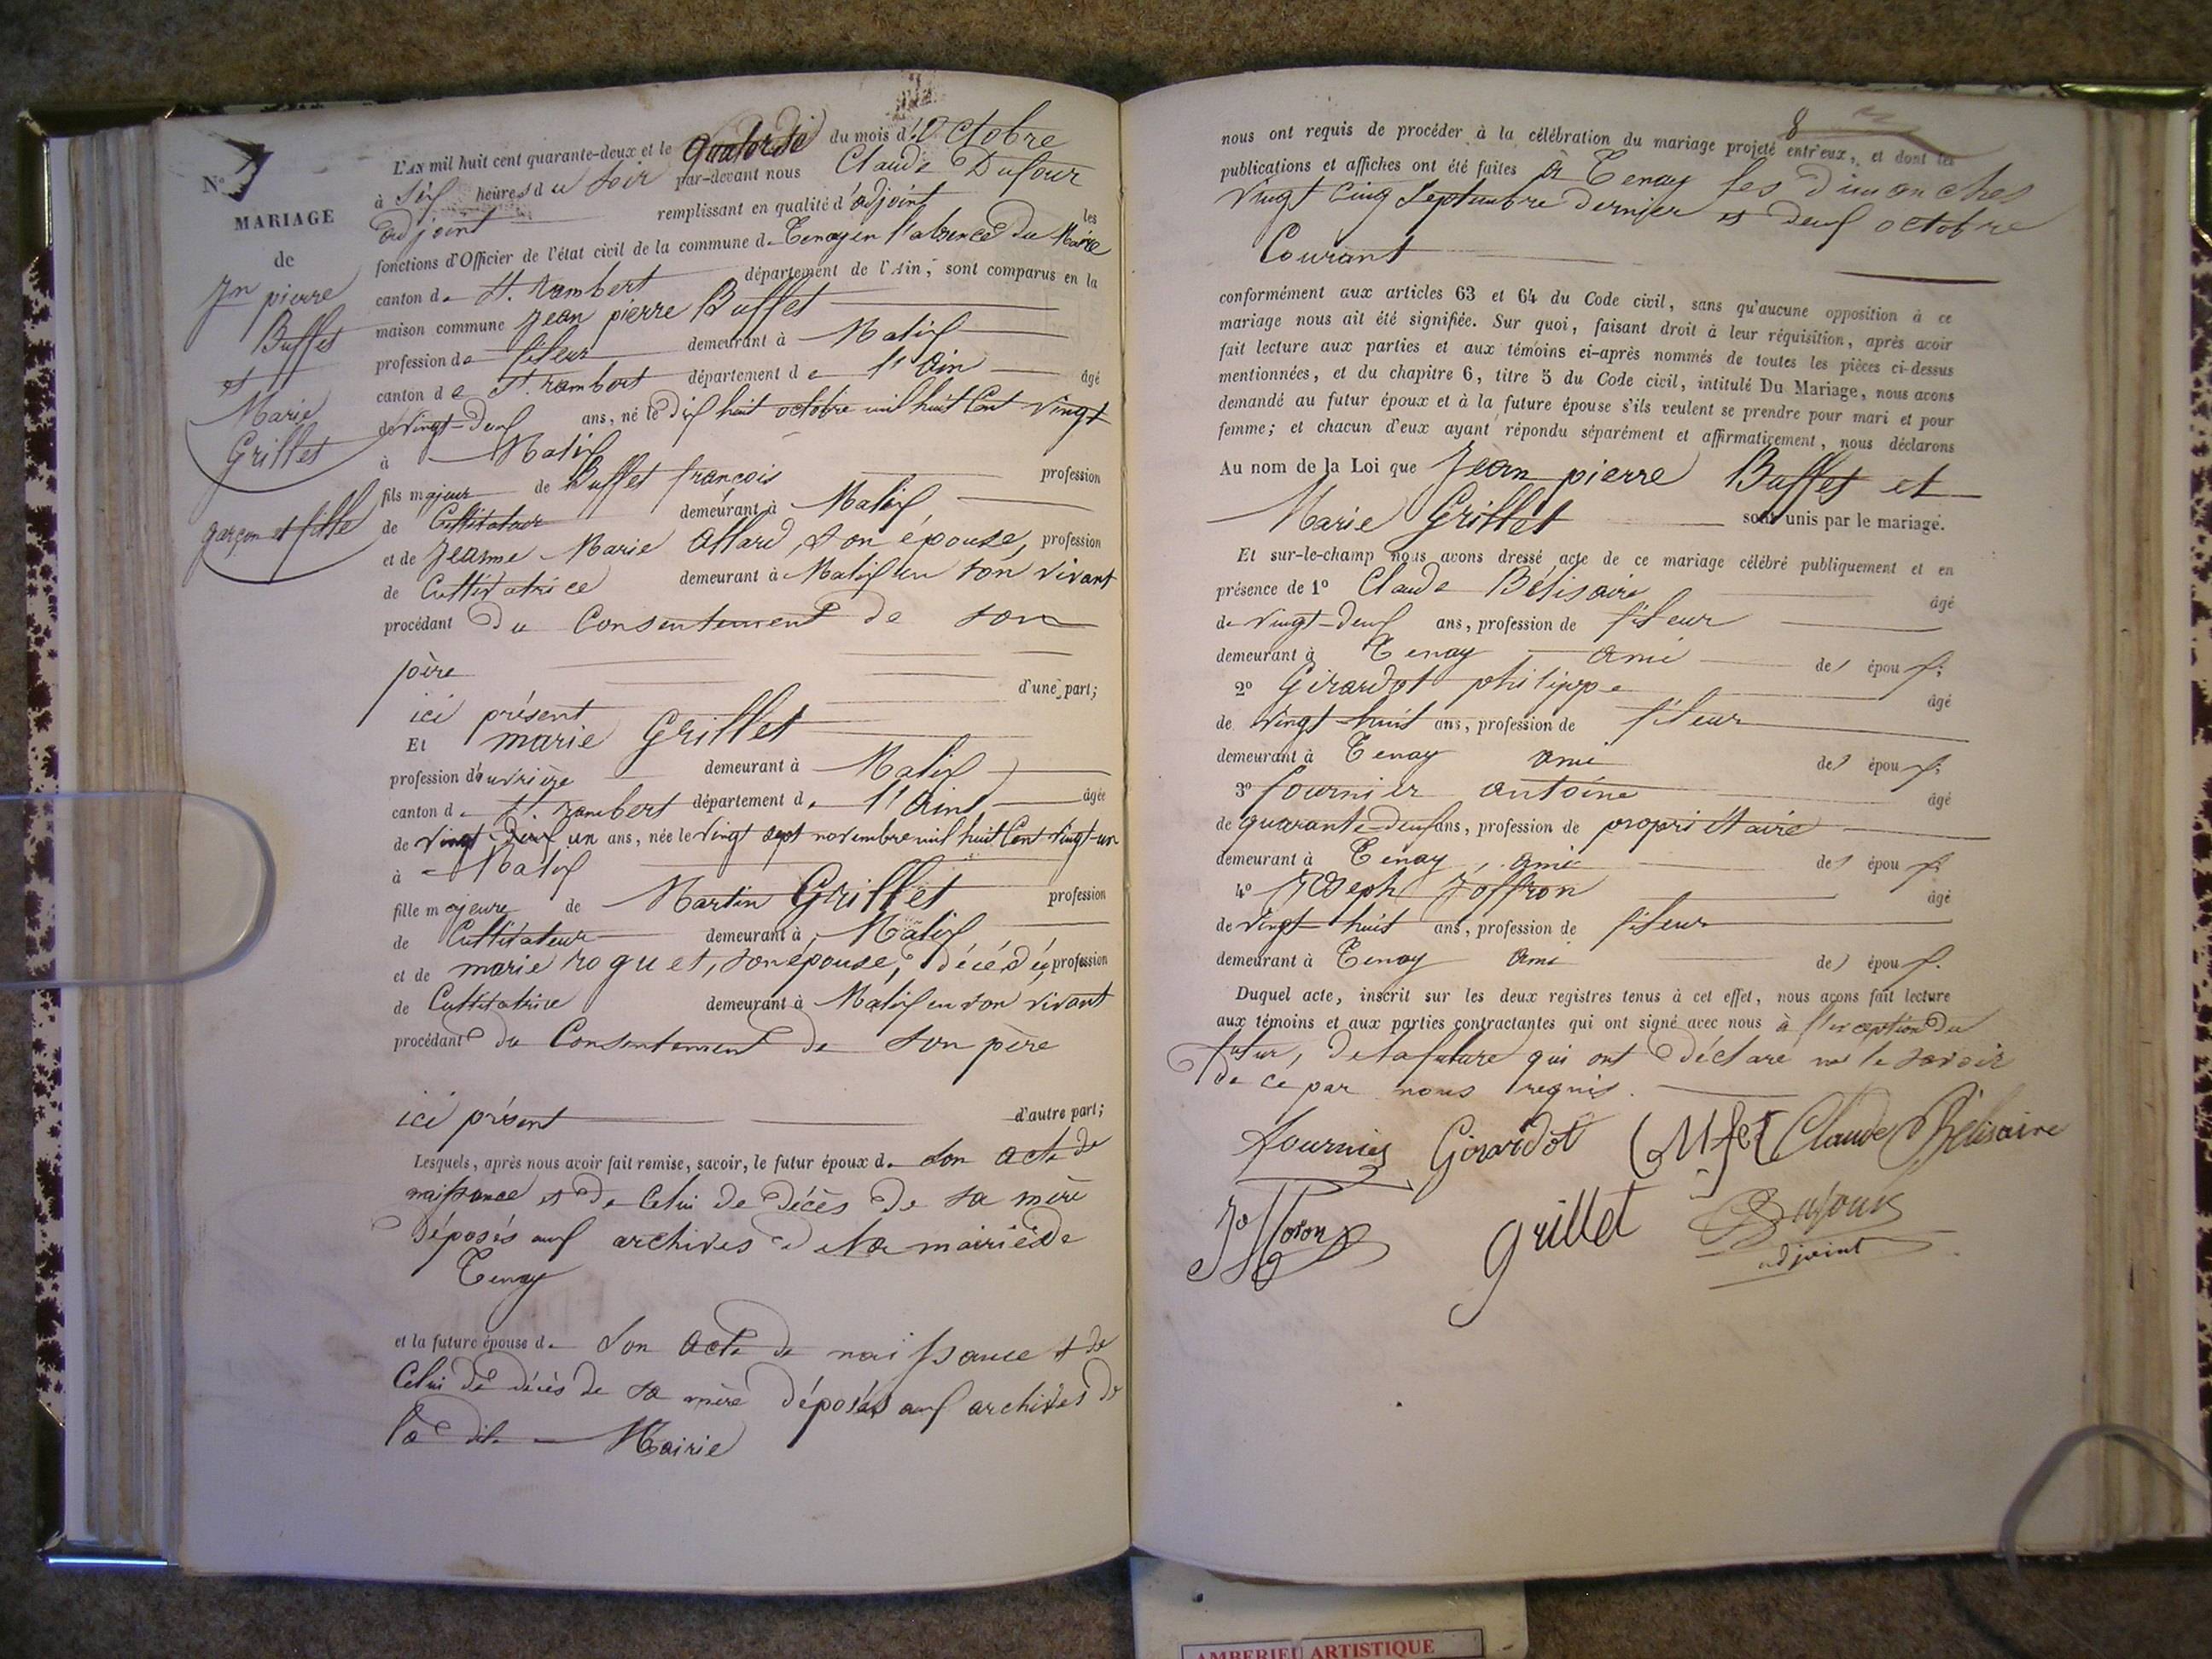 N° 7
MARIAGE
de
Jn pierre
Buffet
et
Marie
Grillet
garçon et fille
L'AN mil huit cent quarante-deux et le quatorze du mois d'Octobre
à six heures du soir par-devant nous Claude Dufour
adjoint remplissant en qualité d'adjoint les
fonctions d'Officier de l'état civil de la commune de Tenay en l'absence du Maire
canton de St. rambert département de l'Ain, sont comparus en la
maison commune Jean pierre Buffet
profession de fileur demeurant à Malix
canton de St. rambert département de l'Ain âgé
de vingt-deux ans, né le dix huit octobre mil huit Cent vingt
à Malix
fils majeur de Buffet françois profession
de Cultivateur demeurant à Malix
et de Jeanne Marie Allard, son épouse, profession
de Cultivatrice demeurant à Malix en son vivant
procédant du Consentement de son
père
ici présent d'une part;
Et marie Grillet
profession d'ouvrière demeurant à Malix
canton de St. rambert département de l'Ain âgée
de vingt un ans, née le vingt sept novembre mil huit Cent vingt-un
à Malix
fille majeure de Martin Grillet profession
de Cultivateur demeurant à Malix
et de marie roguet, son épouse, décédée, profession
de Cultivatrice demeurant à Malix en son vivant
procédant du Consentement de son père
ici présent d'autre part;
Lesquels, après nous avoir fait remise, savoir, le futur époux de son acte de
naissance et de Celui de décès de sa mère
déposés aux archives de la mairie de
Tenay
et la future épouse de son acte de naissance et de
Celui de décès de sa mère déposés aux archives de
la dite Mairie
8
nous ont requis de procéder à la célébration du mariage projeté entr'eux, et dont les
publications et affiches ont été faites à Tenay les dimanches
vingt cinq Septembre dernier et deux octobre
Courant
conformément aux articles 63 et 64 du Code civil, sans qu'aucune opposition à ce
mariage nous ait été signifiée. Sur quoi, faisant droit à leur réquisition, après avoir
fait lecture aux parties et aux témoins ci-après nommés de toutes les pièces ci-dessus
mentionnées, et du chapitre 6, titre 5 du Code civil, intitulé Du Mariage, nous avons
demandé au futur époux et à la future épouse s'ils veulent se prendre pour mari et pour
femme; et chacun d'eux ayant répondu séparément et affirmativement, nous déclarons
Au nom de la Loi que Jean pierre Buffet et
Marie Grillet sont unis par le mariage.
Et sur-le-champ nous avons dressé acte de ce mariage célébré publiquement et en
présence de 1° Claude Bélisaire âgé
de vingt-deux ans, profession de fileur
demeurant à Tenay ami des époux;
2° Girardot philippe âgé
de vingt-huit ans, profession de fileur
demeurant à Tenay ami des époux;
3° fournier antoine âgé
de quarante-deux ans, profession de propriétaire
demeurant à Tenay, ami des époux;
4° Joseph Joffron âgé
de vingt-huit ans, profession de fileur
demeurant à Tenay ami des époux.
Duquel acte, inscrit sur les deux registres tenus à cet effet, nous avons fait lecture
aux témoins et aux parties contractantes qui ont signé avec nous à l'exception du
futur, de la future qui ont déclaré ne le savoir
de ce par nous requis.
fournier Girardot Claude Bélisaire
grillet Dufour
adjoint
AMBERIEU ARTISTIQUE